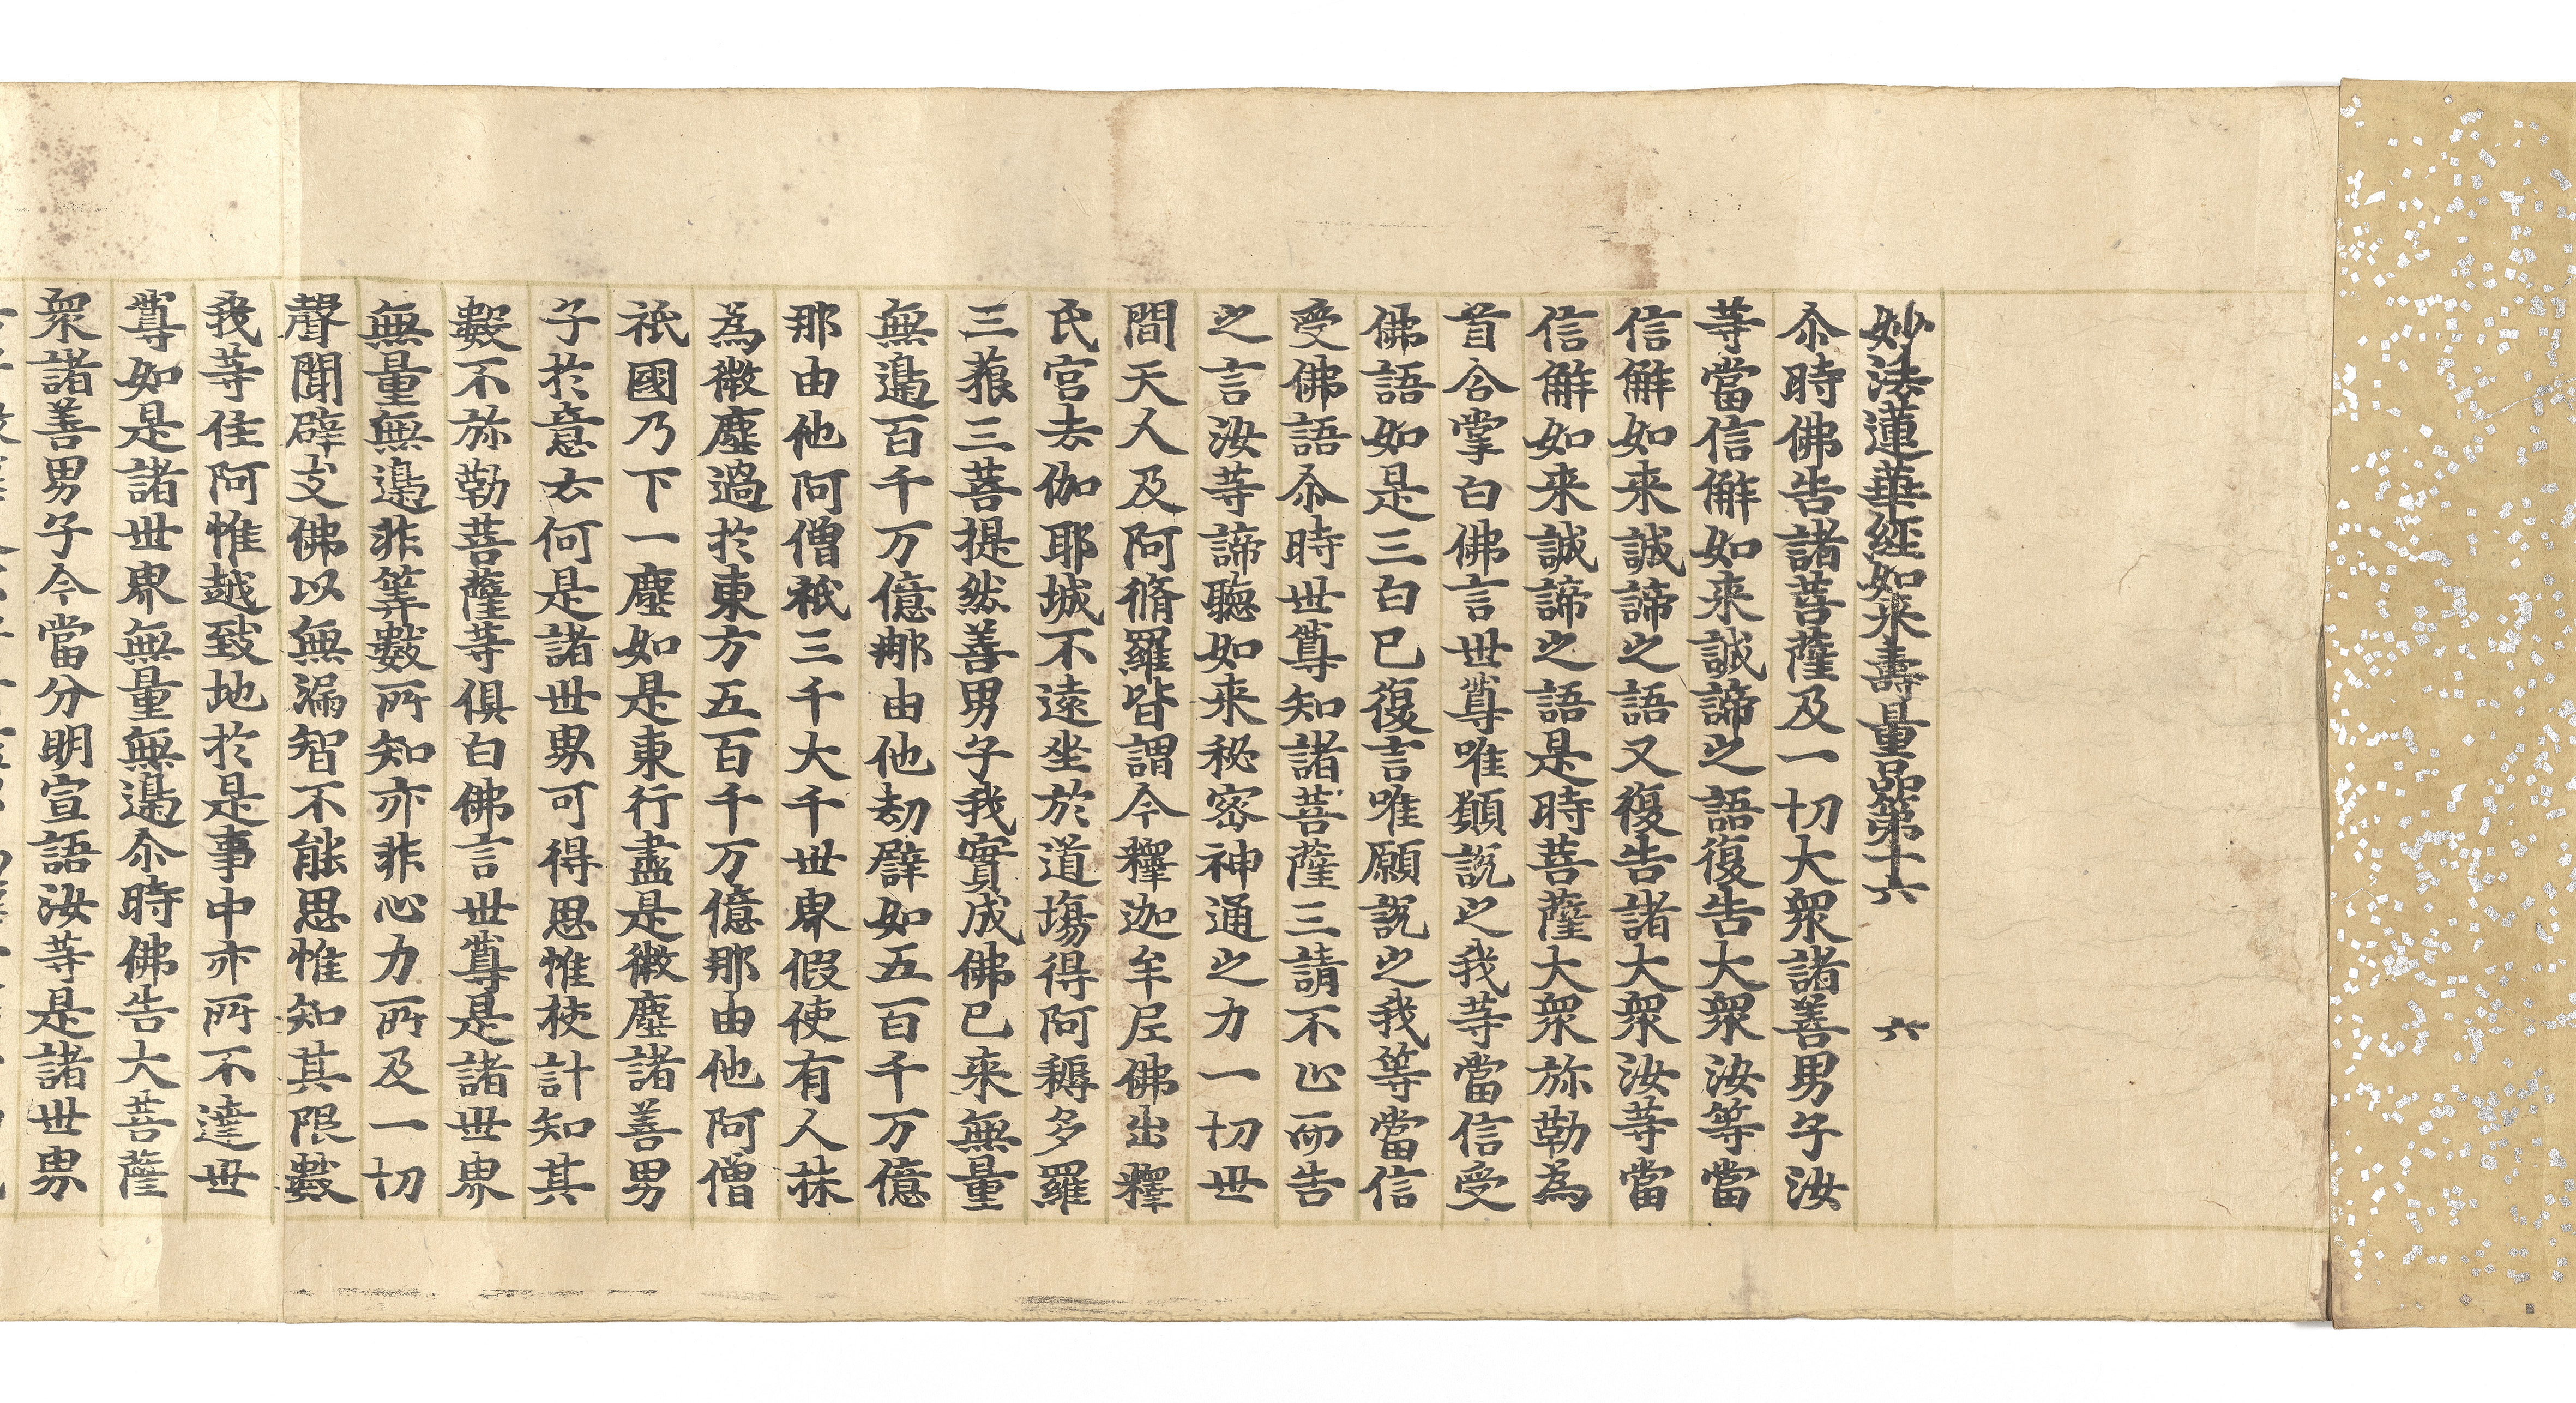 妙法蓮華經如来壽量品第十六　六
尒時佛告諸菩薩及一切大衆諸善男子汝
等當信解如来誠諦之語復告大衆汝等當
信解如来誠諦之語又復告諸大衆汝等當
信解如来誠諦之語是時菩薩大衆弥勒為
首合掌白佛言世尊唯願說之我等當信受
佛語如是三白已復言唯願說之我等當信
受佛語尒時世尊知諸菩薩三請不止而告
之言汝等諦聽如来秘密神通之力一切世
間天人及阿脩羅皆謂今釋迦牟尼佛出釋
氏宮去伽耶城不遠坐於道場得阿耨多羅
三藐三菩提然善男子我實成佛已来無量
無邊百千万億那由他劫譬如五百千万億
那由他阿僧祇三千大千世界假使有人抹
為微塵過於東方五百千万億那由他阿僧
祇國乃下一塵如是東行盡是微塵諸善男
子於意云何是諸世界可得思惟挍計知其
數不弥勒菩薩等俱白佛言世尊是諸世界
無量無邊非筭數所知亦非心力所及一切
聲聞辟支佛以無漏智不能思惟知其限數
我等住阿惟越致地於是事中亦所不達世
尊如是諸世界無量無邊尒時佛告大菩薩
衆諸善男子今當分明宣語汝等是諸世界